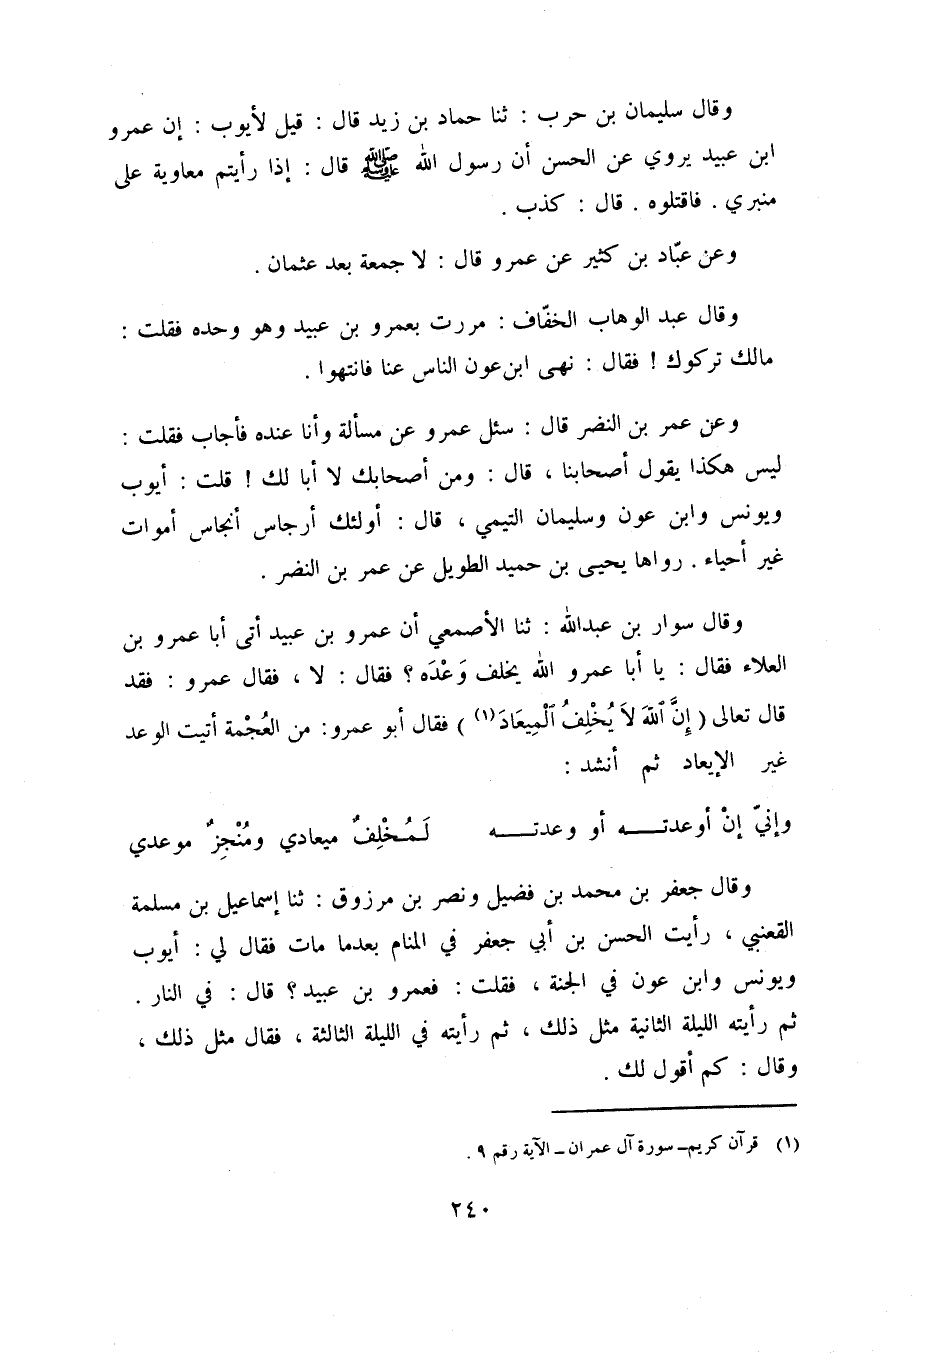 وقال سليمان بن حرب : ثنا حماد بن زيد قال : قيل لأيوب : إن عمرو
ابن عبيد يروي عن الحسن أن رسول الله ﷺ قال : إذا رأيتم معاوية على
منبري . فاقتلوه . قال : كذب .
وعن عبّاد بن كثير عن عمرو قال : لا جمعة بعد عثمان .
وقال عبد الوهاب الخفّاف : مررت بعمرو بن عبيد وهو وحده فقلت :
مالك تركوك ! فقال : نهى ابن عون الناس عنا فانتهوا .
وعن عمر بن النضر قال : سئل عمرو عن مسألة وأنا عنده فأجاب فقلت :
ليس هكذا يقول أصحابنا ، قال : ومن أصحابك لا أبا لك ! قلت : أيوب
ويونس وابن عون وسليمان التيمي ، قال : أولئك أرجاس أنجاس أموات
غير أحياء . رواها يحيى بن حميد الطويل عن عمر بن النضر .
وقال سوار بن عبدالله : ثنا الأصمعي أن عمرو بن عبيد أتى أبا عمرو بن
العلاء فقال : يا أبا عمرو الله يخلف وَعْدَه ؟ فقال : لا ، فقال عمرو : فقد
قال تعالى ( إِنَّ ٱللهَ لاَ يُخْلِفُ ٱلْمِيعَادَ (١) ) فقال أبو عمرو : من العُجْمة أتيت الوعد
غير الإيعاد ثم أنشد :
وإنيّ إنْ أوعدتـــه أو وعدتـــه لَـمُـخْلِفٌ ميعادي ومُنْجِزٌ موعدي
وقال جعفر بن محمد بن فضيل ونصر بن مرزوق : ثنا إسماعيل بن مسلمة
القعنبي ، رأيت الحسن بن أبي جعفر في المنام بعدما مات فقال لي : أيوب
ويونس وابن عون في الجنة ، فقلت : فعمرو بن عبيد ؟ قال : في النار .
ثم رأيته الليلة الثانية مثل ذلك ، ثم رأيته في الليلة الثالثة ، فقال مثل ذلك ،
وقال : كم أقول لك .
(١) قرآن كريم ـ سورة آل عمران ـ الآية رقم ٩ .
٢٤٠